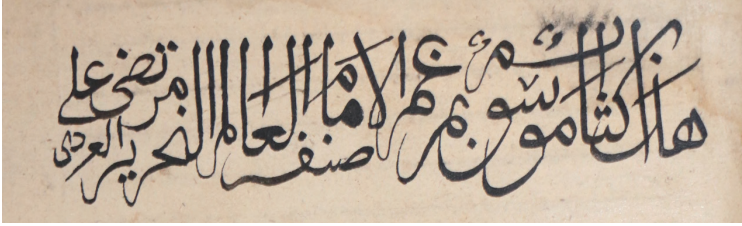 هذا كتاب موسوم بمرغم صنفه الامام العالم النحرير مرتضى علي